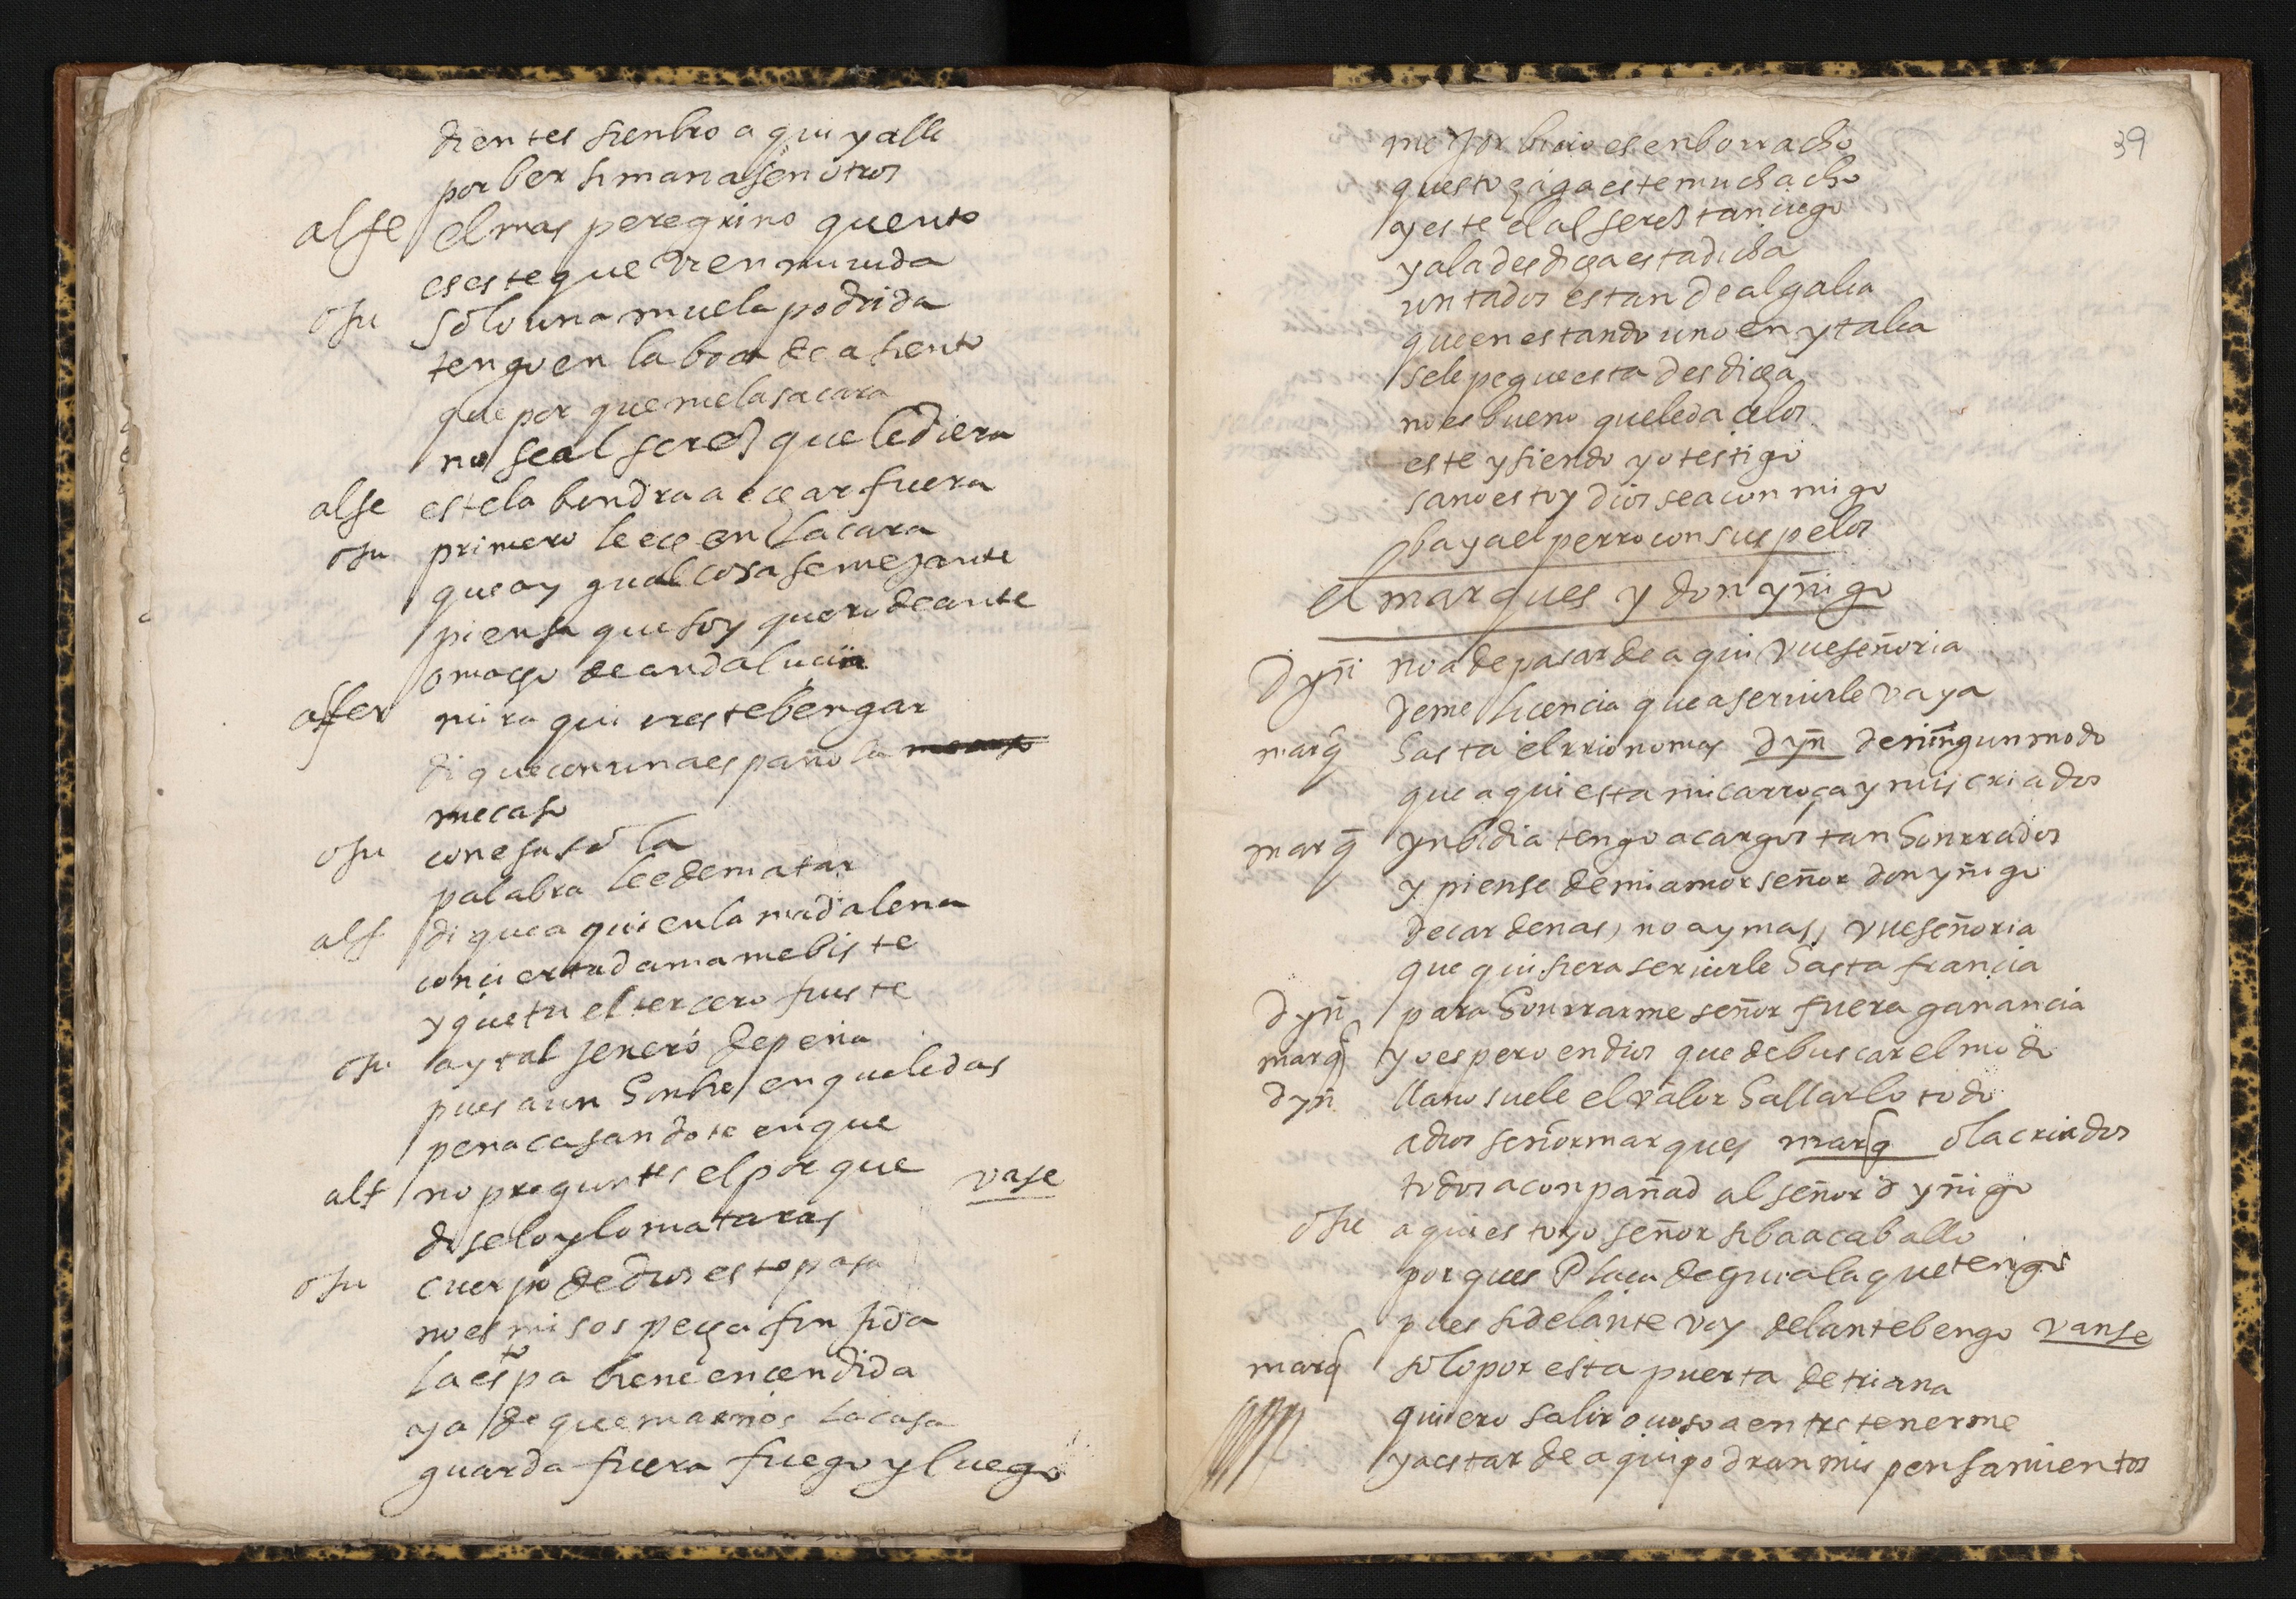 dientes sienbro aqui y alla
por ber si manasen otros
alfe el mas peregrino quento
es este que vi en mi vida
osu solo una muela podrida
tengo en la boca de asiento
que por que me la sacara
no se alferes que le diera
alfe este la bendra a ecar fuera
osu primero le ece en la cara
que ay gual cosa semejante
piensa que soy quero de ante
o maço de andalucia
alfer mira qui res te bengar
di que con una española
me caso
osu con esa sola
palabra le e de matar
alf di que aqui en la madalena
con cierta dama me biste
y que tu el tercero fuiste
osu ay tal jenero de pena
pues a un honbre en que le das
pena casandote en que
alf no preguntes el por que vase
diselo y lo mataras
osu cuerpo de dios esto pasa
no es mi sospeça finjida
la estopa tiene encendida
a de quemarnos la casa
guarda fuera fuego y luego
39
mejor bino es enborracho
questo haga este muchacho
y este el alferes tan ciego
y a la desdiça esta dicha
untados estan de algalia
que en estando uno en ytalia
se le pegue esta desdiça
no es bueno que le da celos
este y siendo yo testigo
sano estoy dios sea conmigo
baya el perro con sus pelos
el marques y don yñigo
d yñi no a de pasar de aqui vueseñoria
deme licencia que a seruirle vaya
marq hasta el rrio no mas d yñ de ningun modo
que aqui esta mi carroça y mis criados
marq ynbidia tengo a cargos tan honrrados
y piense de mi amor señor don yñigo
de cardenas, no ay mas, vueseñoria
que quisiera seruirle hasta francia
d yñ para honrrarme señor fuera ganancia
marq yo espero en dios que de buscar el modo
d yñ llano suele el valor hallarlo todo
adios señor marques marq ola criados
todos aconpañad al señor d yñigo
osu aqui estoy yo señor si ba a caballo
por ques plaça de guia la que tengo
pues si delante voy delante bengo vanse
marq solo por esta puerta de triana
quiero salir ocioso a entretenerme
y a estar de aqui podran mis pensamientos